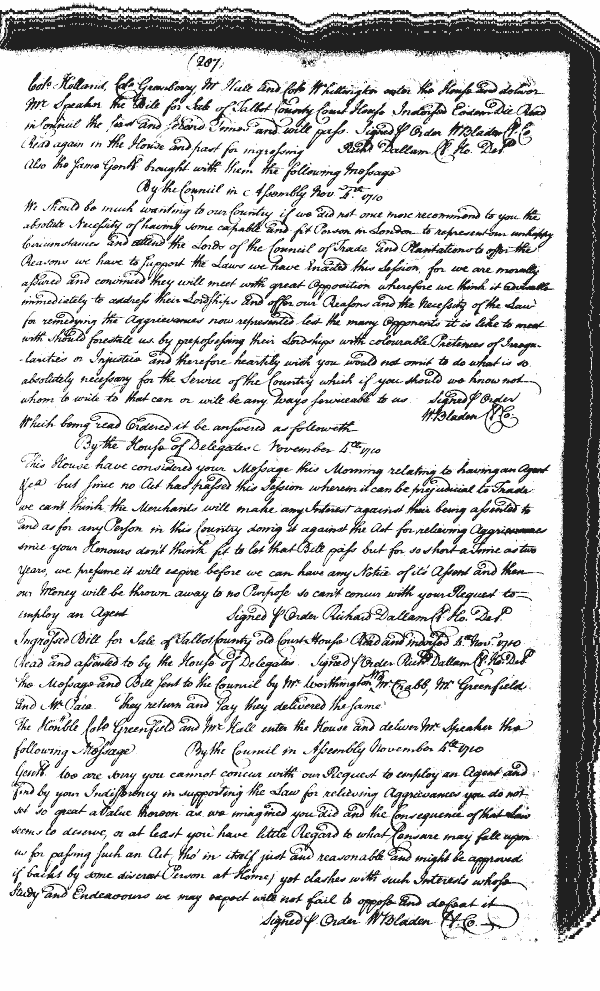 (287)
Cols Holland, Colo Greenberry Mr Hall and Colo Whittington enter the House and deliver
Mr Speaker the Bill for Sale of Talbot County Court House Indorsed Eodem Die Read
in Council the first and second Time and will pass. Signed P Order WBladen Cl Co.
Read again in the House and past for ingrossing Richd Dallam Cl Ho. Delo
Also the same Gentn brought with them the following Message
By the Council in Assembly Nov 4th 1710
We should be much wanting to our Country if we did not one more recommend to you the
absolute Necessity of having some capable and fit Person in London to represent our unhappy
Circumstances and attend the Lords of the Council of Trade and Plantations to offer the
Reasons we have to support the Laws we have Enacted this Session, for we are morally
assured and convinced they will meet with great Opposition wherefore we think it
immediately to address their Lordships and offer our Reasons and the Necessity of the Law
for remedying the Aggrievances now represented lest the many Opponents it is like to meet
with should forestale us by prepossessing their Lordships with colourable Pretences of Irregu-
larities or Injustice and therefore heartily wish you would not omit to do what is so
absolutely necessary for the Service of the Country which if you should we know not
whom to write to that can or will be any Ways serviceable to us Signed P Order
WBladen Cl Co.
Which being read Ordered it be answered as followeth
By the House of Delegates November 4th 1710
This House have considered your Message this Morning relating to having an Agent
&ca but since no Act has passed this Session wherein it can be prejudicial to Trade
we can't think the Merchants will make any Interest against their being assented to
and as for any Person in this Country doing it against the Act for relieving Aggrievances
since your Honours don't think fit to let that Bill pass but for so short a Time as two
Years, we presume it will expire before we can have any Notice of it's Assent and then
our Money will be thrown away to no Purpose so can't concur with your Request to
employ an Agent Signed P Order Richard Dallam Cl Ho. Delo
Ingrossed Bill for Sale of Talbot County old Court House Read and 4th Novr 1710
Read and assented to by the House of Delegates. Signed P Order Richd Dallam Cl Ho Delo
The Message and Bill sent to the Council by Mr Worthington Mr Crabb, Mr Greenfield
and Mr They return and say they delivered the same
The Honble Colo Greenfield and Mr Hall enter the House and deliver Mr Speaker the
following Message By the Council in Assembly November 4th 1710
Gentn We are sorry you cannot concur with our Request to employ an Agent and
find by your Indifferency in supporting the Law for relieving Aggrievances you do not
set so great a Value thereon as we imagined you did and the Consequence of that Law
seems to deserve, or at least you have little Regard to what Censure may fall upon
us for passing such an Act tho' in itself just and reasonable and might be approved
if backt by some discreet Person at Home; yet clashes with such Interests whose
Study and Endeavours we may expect will not fail to oppose and defeat it
Signed P Order WBladen Cl Co.